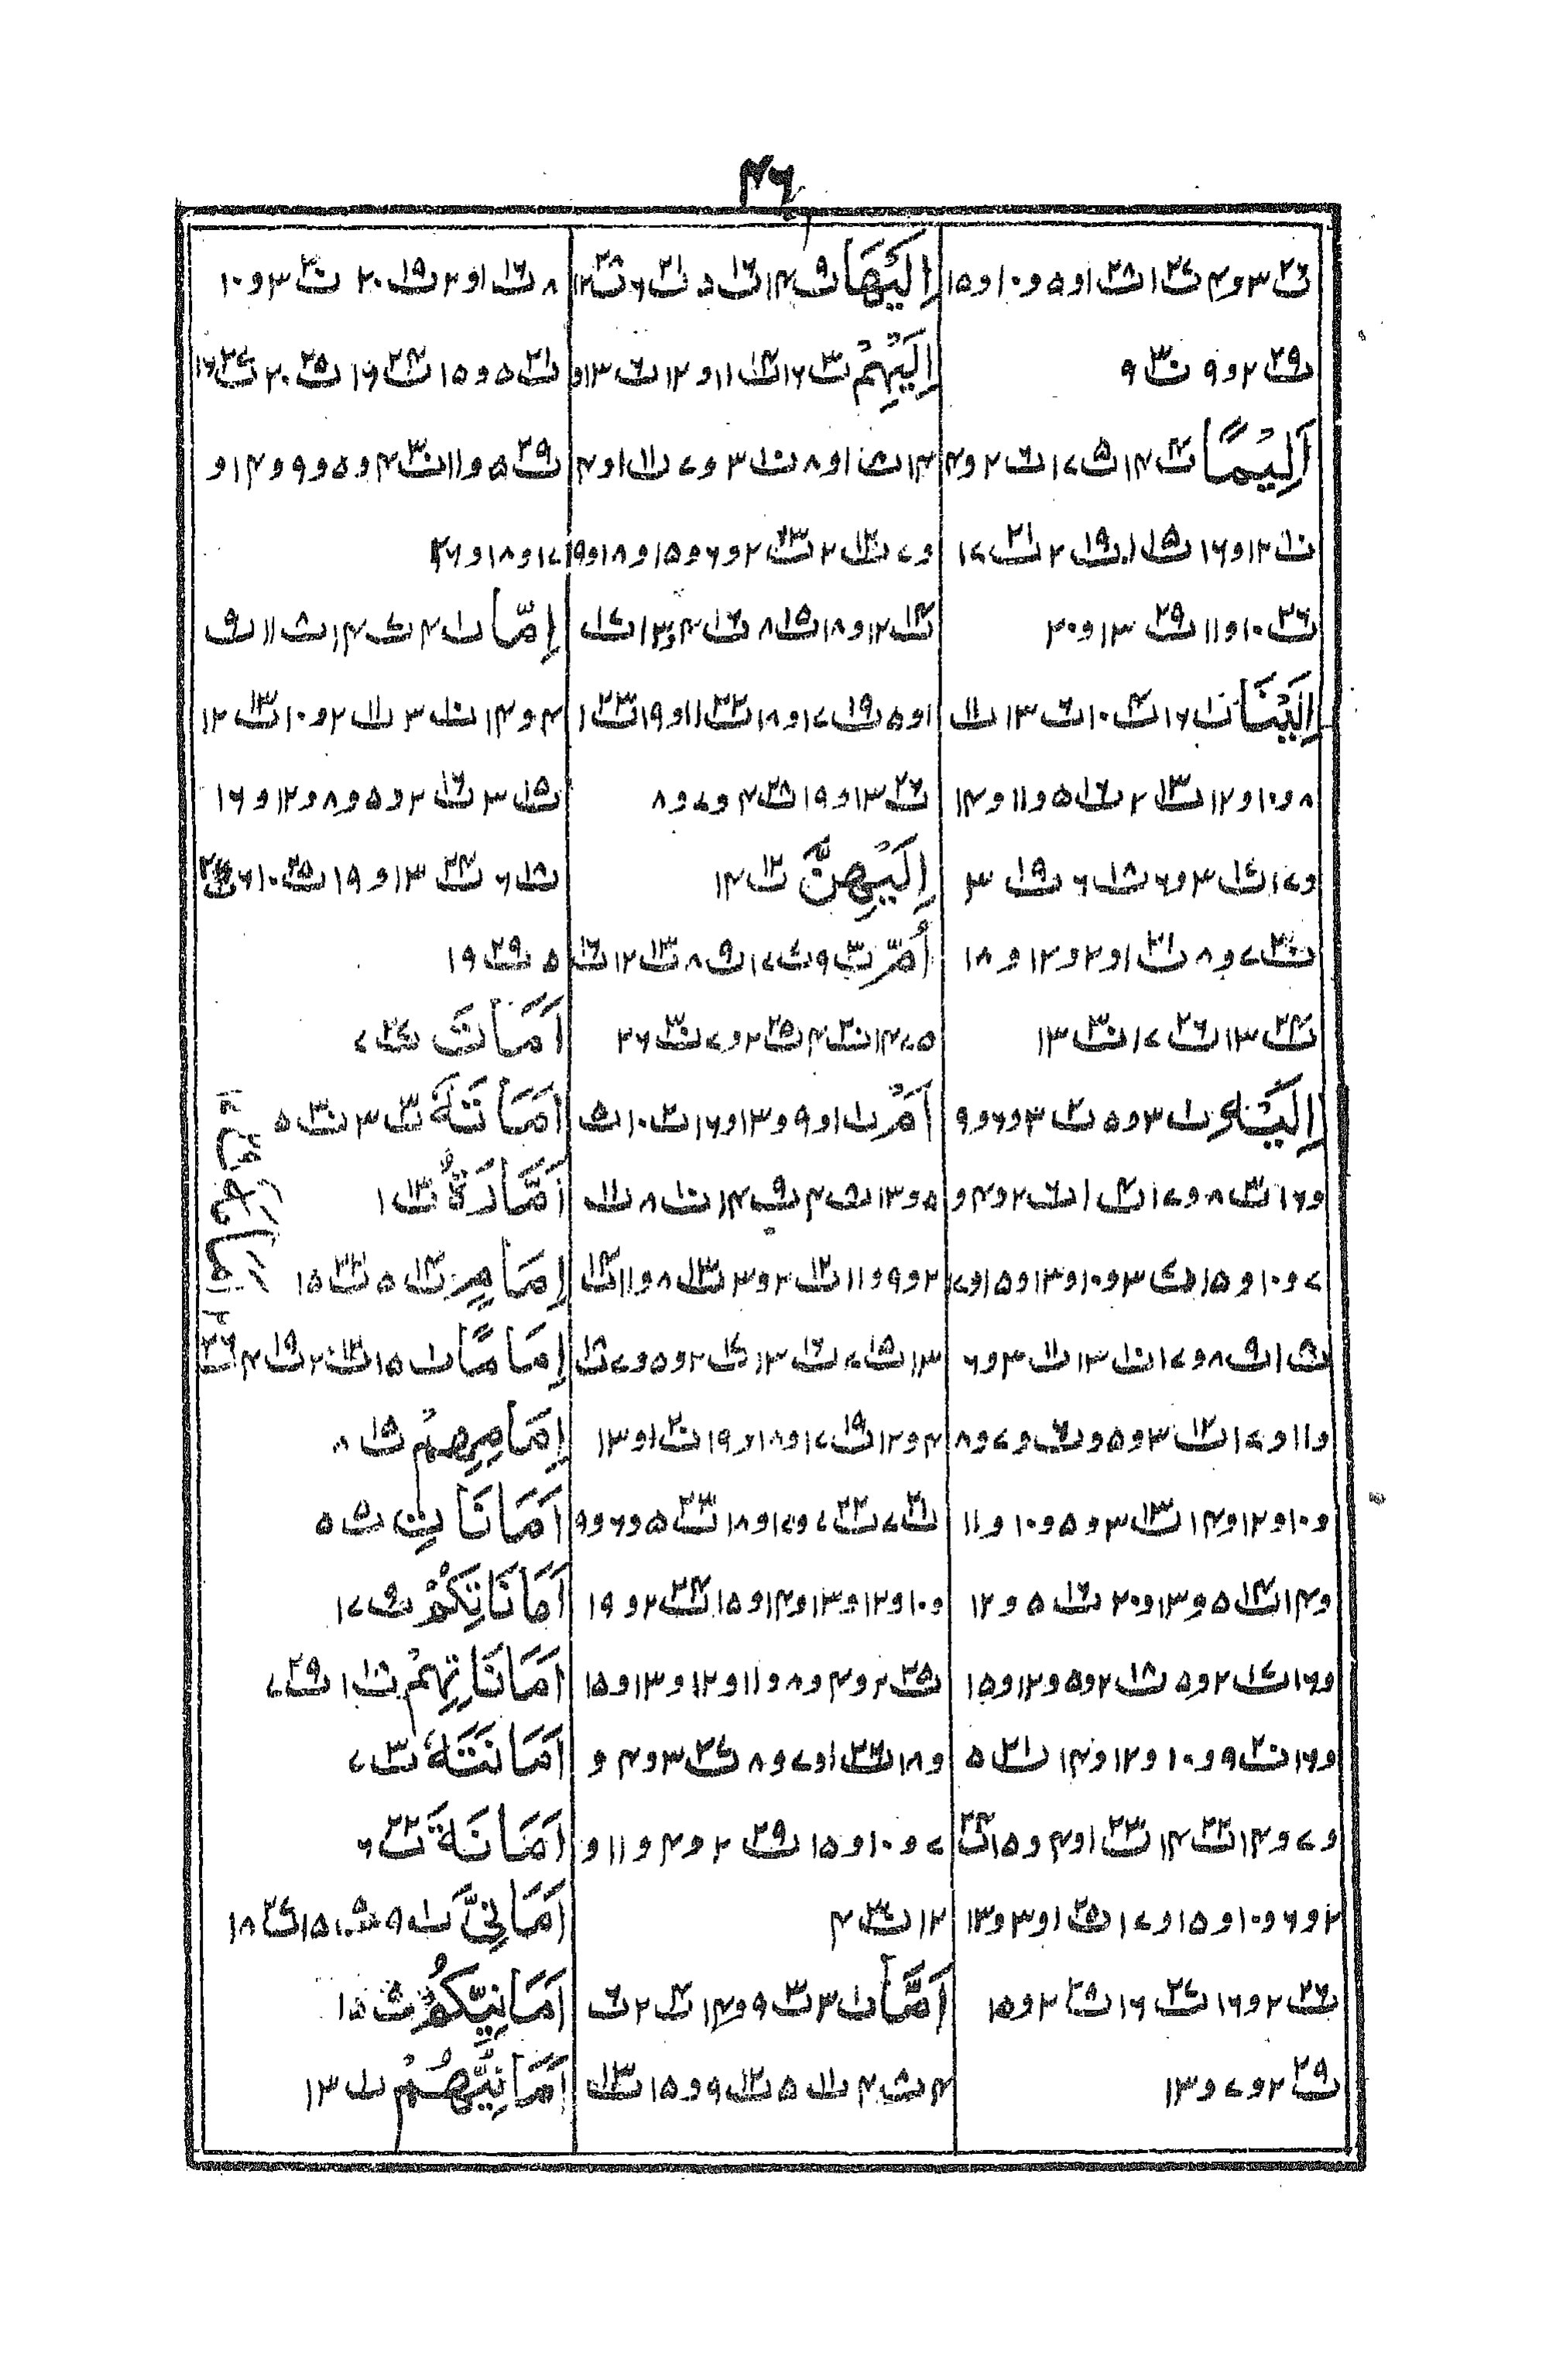 ۴۶
ت۲۶ ۳و۴ ت۲۷ ۱ ت۲۸ ۱و۵و۱۰و۱۵
ت۲۹ ۲و۹ ت۳۰ ۹
اَلِیْمًا ت۴ ۱۴ ت۵ ۱۷ ت۶ ۲و۴
ت۱۰ ۱۲و۱۶ ت۱۵ ۱ ت۱۹ ۲ ت۲۱ ۱۷
ت۲۶ ۱۰و۱۱ ت۲۹ ۱۳و۲۰
اِلَیْنَا ت۱ ۱۶ ت۴ ۱۰ ت۶ ۱۳ ت۱۱
۸و۱۰و۱۲ ت۱۳ ۲ ت۱۶ ۵و۱۱و۱۴
و۱۷ ت۱۷ ۳و۶ ت۱۸ ۶ ت۱۹ ۳
ت۲۰ ۷و۸ ت۲۱ ۱و۲و۱۲و۱۸
ت۲۴ ۱۳ ت۲۶ ۱۷ ت۳۰ ۱۳
اِلَیْهِ ت۱ ۳و۵ ت۲ ۳و۶و۹
و۱۶ ت۳ ۸و۱۷ ت۴ ۱ ت۶ ۲و۴و
۷و۱۰و۱۵ ت۷ ۳و۱۰و۱۳و۱۵و۱۷
ت۸ ۱ ت۹ ۸و۱۷ ت۱۰ ۱۳ ت۱۱ ۳و۶
و۱۱و۱۷ ت۱۲ ۳و۵و ت۶ و۷و۸
و۱۰و۱۲و۱۴ ت۱۳ ۳و۵و۱۰و۱۱
و۱۴ ت۱۴ ۵و۱۳و۲۰ ت۱۶ ۵و۱۲
و۱۶ ت۱۷ ۲و۵ ت۱۸ ۲و۵و۱۲و۱۵
و۱۶ ت۲۰ ۹و۱۰و۱۲و۱۴ ت۲۱ ۵
و۷و۱۴ ت۲۲ ۱۴ ت۲۳ ۱و۴و۱۵ ت۲۴
۲و۶و۱۰و۱۵و۱۷ ت۲۵ ۱و۳و۱۳
ت۲۶ ۲و۱۶ ت۲۷ ۱۶ ت۲۸ ۲و۱۵
ت۲۹ ۲و۷و۱۳
اِلَیْهَا ت۹ ۱۴ ت۱۶ ۱۰ ت۲۱ ۶ ت۲۸ ۱۲
اِلَیْهِمْ ت۳ ۱۶ ت۴ ۱۱و۱۲ ت۶ ۱۳و
۱۴ ت۸ ۱و۸ ت۱۰ ۳و۷ ت۱۱ ۱و۴
و۷ ت۱۲ ۲ ت۱۳ ۲و۶و۱۵و۱۸و۱۹
ت۱۴ ۱۲و۱۸ ت۱۵ ۸ ت۱۶ ۴و۱۳ ت۱۷
۱و۵ ت۱۹ ۱۷و۱۸ ت۲۲ ۱۱و۱۹ ت۲۳ ۱
ت۲۶ ۱۳و۱۹ ت۲۸ ۴و۷و۸
اِلَیْهِنَّ ت۱۲ ۱۴
اُمِّ ت۳ ۹ ت۷ ۱۷ ت۹ ۸ ت۱۳ ۱۲ ت۱۶
۵و۱۴ ت۲۰ ۴ ت۲۵ ۲و۷ ت۳۰ ۲۶
اَمْ ت۱ ۱و۹و۱۳و۱۶ ت۲ ۱۰ ت۵
۵و۱۳ ت۸ ۴ ت۹ ۱۴ ت۱۰ ۸ ت۱۱
۲و۹و۱۱ ت۱۲ ۲و۳ ت۱۳ ۸و۱۱ ت۱۴
۱۳ ت۱۵ ۷ ت۱۶ ۱۳ ت۱۷ ۲و۵و۷ ت۱۸
۴و۱۲ ت۱۹ ۱۷و۱۸و۱۹ ت۲۰ ۱و۱۳
ت۲۱ ۷ ت۲۲ ۷و۱۷و۱۸ ت۲۳ ۵و۶و۹
و۱۰و۱۲و۱۳و۱۴و۱۵ ت۲۴ ۲و۱۹
ت۲۵ ۲و۴و۸و۱۱و۱۲و۱۳و۱۵
و۱۸ ت۲۶ ۱و۷و۸ ت۲۷ ۳و۴و
۷و۱۰و۱۵ ت۲۹ ۲و۴و۱۱و
۱۲ ت۳۰ ۴
اَمَّا ت۱ ۳ ت۳ ۹و۱۴ ت۴ ۲ ت۶
۴ ت۸ ۴ ت۱۱ ۵ ت۱۲ ۹و۱۵ ت۱۳
۸ ت۱۶ ۱و۲ ت۱۹ ۲۰ ت۲۰ ۳و۱۰
ت۲۱ ۵و۱۵ ت۲۴ ۱۶ ت۲۵ ۲۰ ت۲۷ ۱۶
ت۲۹ ۵و۱۱ ت۳۰ ۴و۵و۹و۱۴و
۱۷و۱۸و۲۶
اِمَّا ت۱ ۴ ت۷ ۱۴ ت۸ ۱۱ ت۹
۴و۱۴ ت۱۰ ۳ ت۱۱ ۲و۱۰ ت۱۳ ۱۲
ت۱۵ ۳ ت۱۶ ۲و۵و۸و۱۲و۱۶
ت۱۸ ۶ ت۲۴ ۱۳و۱۹ ت۲۵ ۱۰ ت۲۶
۵ ت۲۹ ۱۹
اَمَاتَ ت۲۷ ۷
اَمَاتَهٗ ت۳ ۳ ت۳۰ ۵
اَمَّارَةٌ ت۱۳ ۱
اِمَامٍ ت۱۴ ۵ ت۲۲ ۱۵
اِمَامًا ت۱ ۱۵ ت۱۲ ۲ ت۱۹ ۴ ت۲۶
اِمَامِهِمْ ت۱۵ ۸
اَمَانَاتِ ت۵ ۵
اَمَانَاتِکُمْ ت۹ ۱۷
اَمَانَاتِهِمْ ت۱۸ ۱ ت۲۹ ۷
اَمَانَتَهٗ ت۳ ۷
اَمَانَةَ ت۲۲ ۶
اَمَانِیَّ ت۱ ۹ ت۵ ۱۵ ت۲۷ ۱۸
اَمَانِیِّکُمْ ت۵ ۱۵
اَمَانِیُّهُمْ ت۱ ۱۳